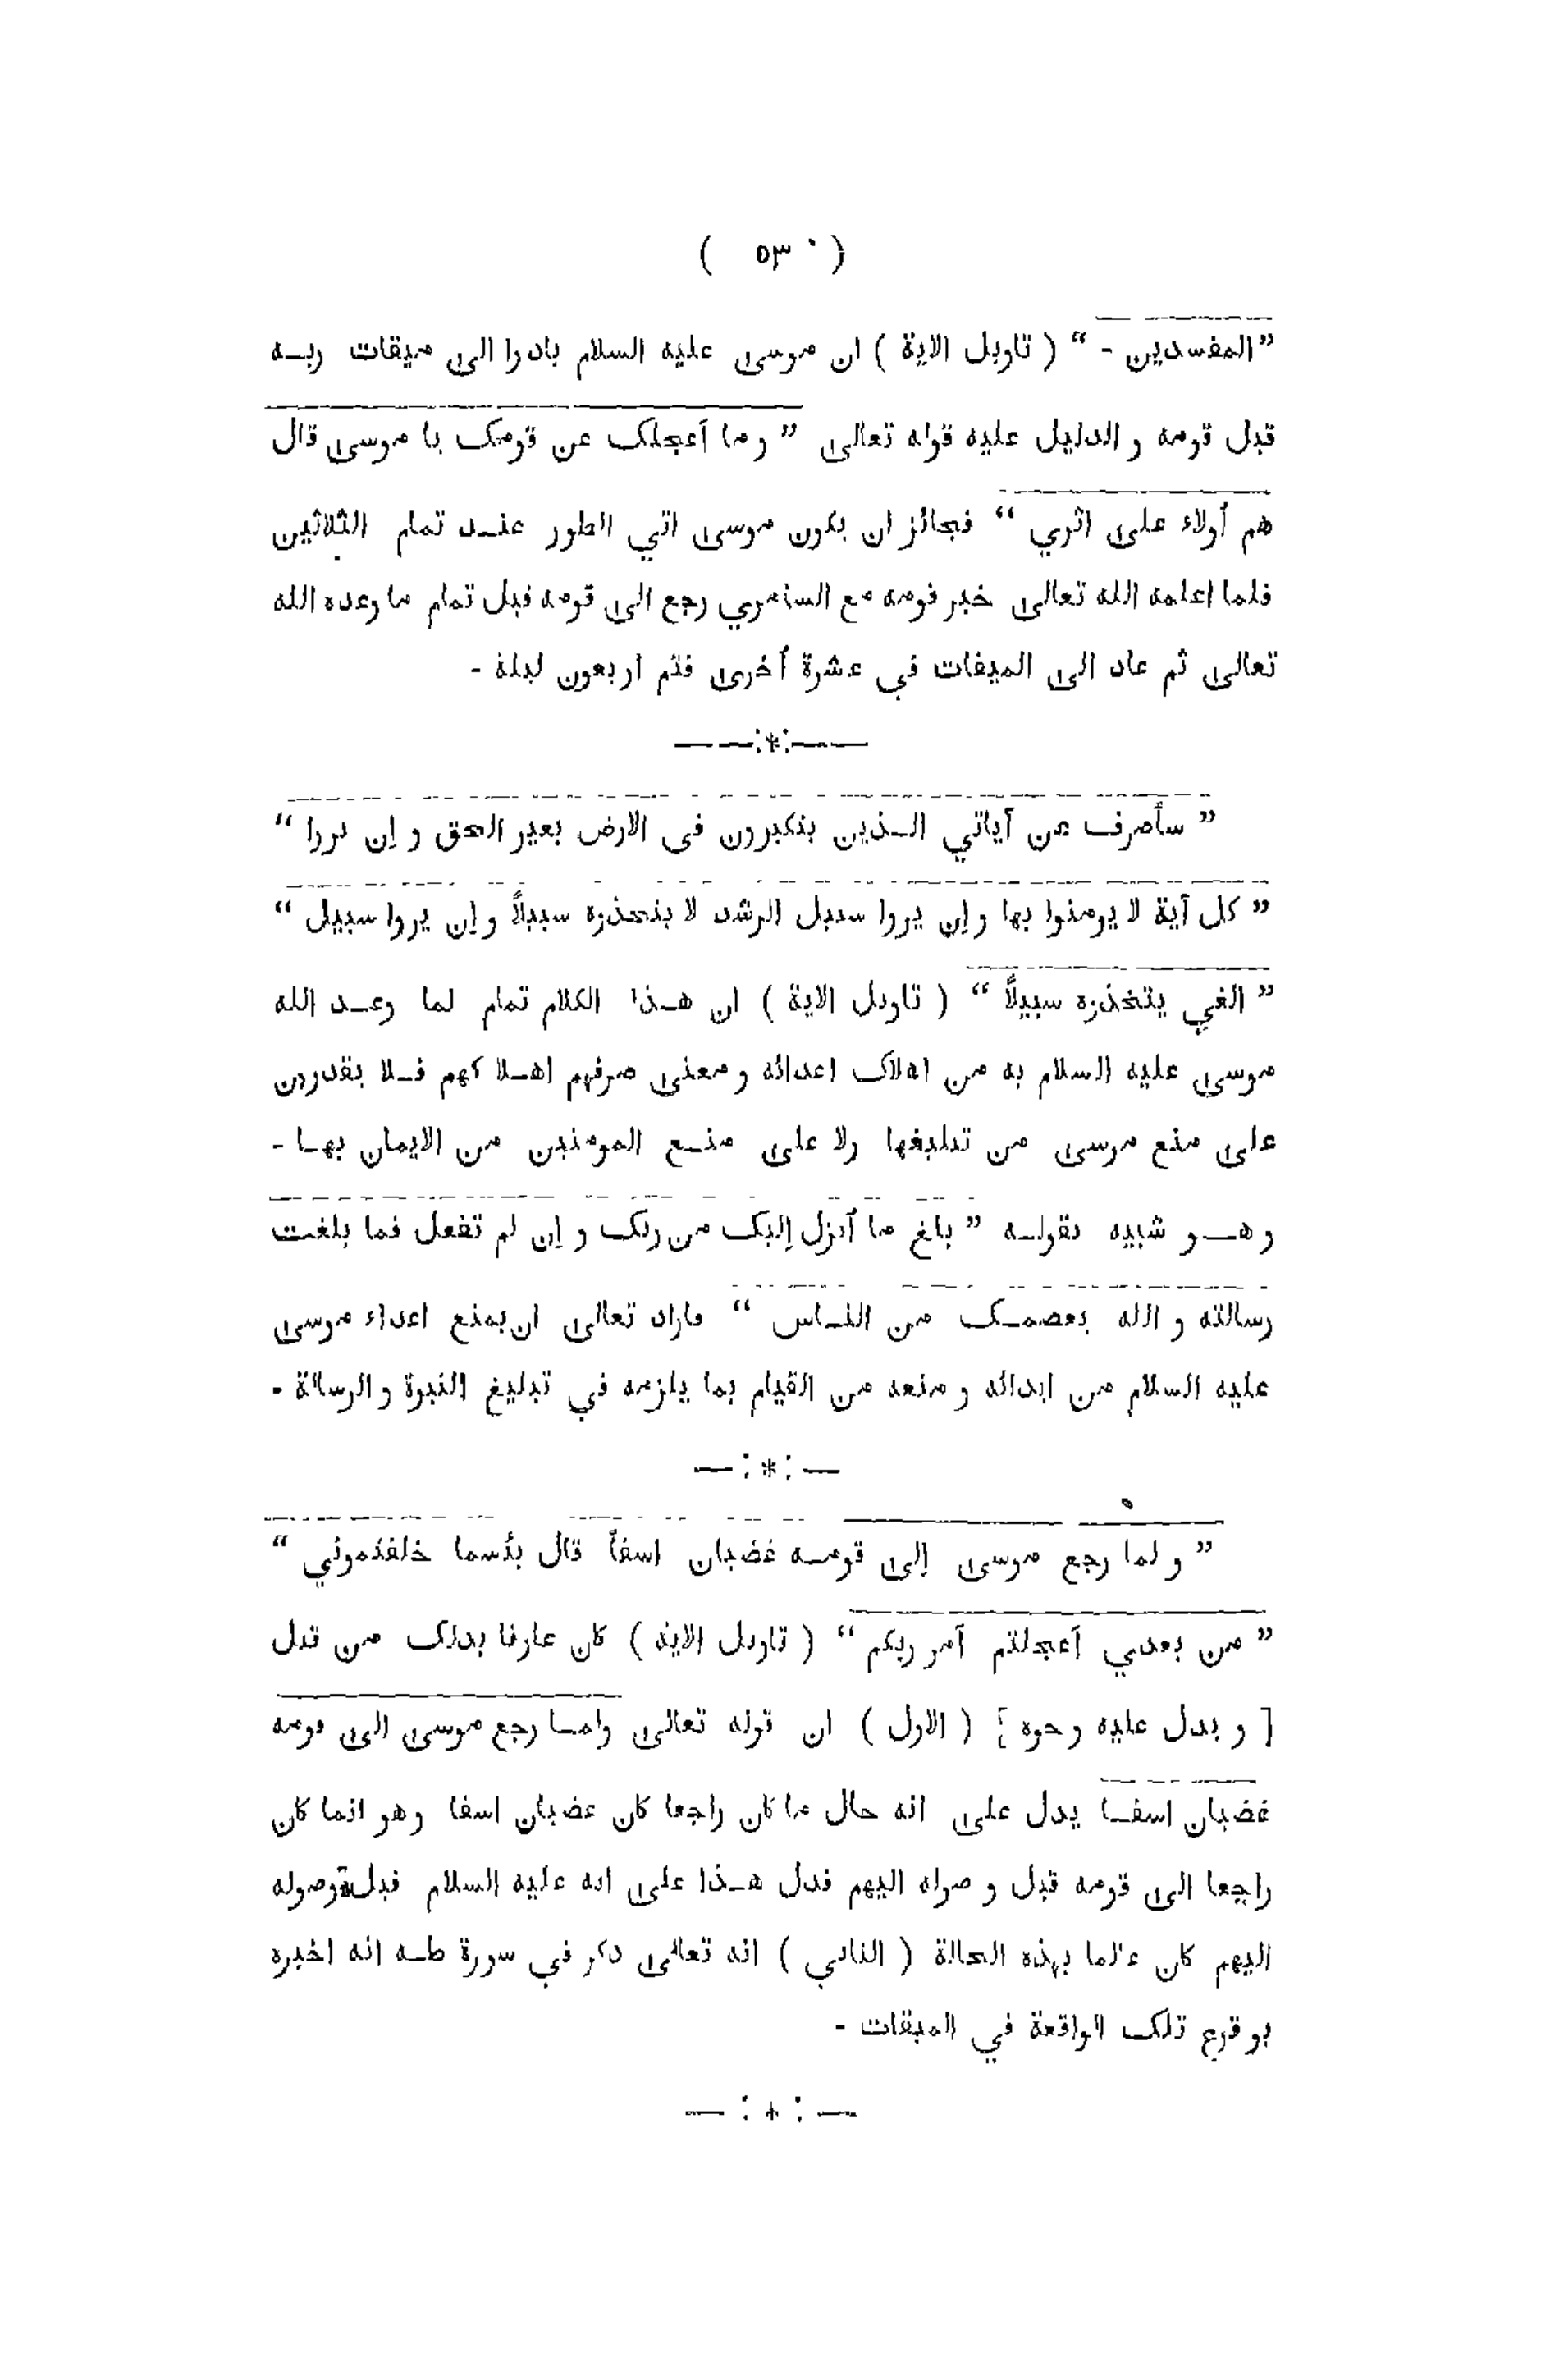 ( ٥٣٠ )
”المفسدين - “ ( تاويل الاية ) ان موسى عليه السلام بادرا الى ميقات ربه
قبل قومه و الدليل عليه قوله تعالى ” وما أعجلك عن قومك يا موسى قال
هم أولاء على اثري “ فجائز ان يكون موسى اتي الطور عند تمام الثلاثين
فلما اعلمه الله تعالى خبر قومه مع السامري رجع الى قومه قبل تمام ما وعده الله
تعالى ثم عاد الى الميقات في عشرة أخرى فتم اربعون ليلة -
——:*:——
” سأصرف عن آياتي الذين يتكبرون في الارض بغير الحق و إن يروا “
” كل آية لا يومنوا بها و إن يروا سبيل الرشد لا يتخذوه سبيلاً و إن يروا سبيل “
” الغي يتخذوه سبيلاً “ ( تاويل الاية ) ان هذا الكلام تمام لما وعد الله
موسى عليه السلام به من اهلاك اعدائه و معنى صرفهم اهلا كهم فلا يقدرون
على منع موسى من تبليغها ولا على منع المومنين من الايمان بها -
و هو شبيه بقوله ” بلغ ما أنزل إليك من ربك و إن لم تفعل فما بلغت
رسالته و الله يعصمك من الناس “ فاراد تعالى ان يمنع اعداء موسى
عليه السلام من ايذائه و منعه من القيام بما يلزمه في تبليغ النبوة و الرسالة -
— : * : —
” و لما رجع موسى إلى قومه غضبان اسفاً قال بئسما خلفتموني “
” من بعدي أعجلتم أمر ربكم “ ( تاويل الاية ) كان عارفا بذلك من قبل
[ و يدل عليه وجوه ] ( الاول ) ان قوله تعالى ولما رجع موسى الى قومه
غضبان اسفا يدل على انه حال ما كان راجعا كان غضبان اسفا وهو انما كان
راجعا الى قومه قبل و صوله اليهم فدل هذا على انه عليه السلام قبل وصوله
اليهم كان عالما بهذه الحالة ( الثاني ) انه تعالى ذكر في سورة طه انه اخبره
بوقوع تلك الواقعة في الميقات -
— : * : —